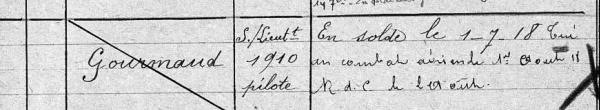 S./Lieutt
Gourmaud
1910
pilote
En solde le 1-7-18 Tué
en combat aérien le 1er Aout 18
R. d. C. le 2 Août.